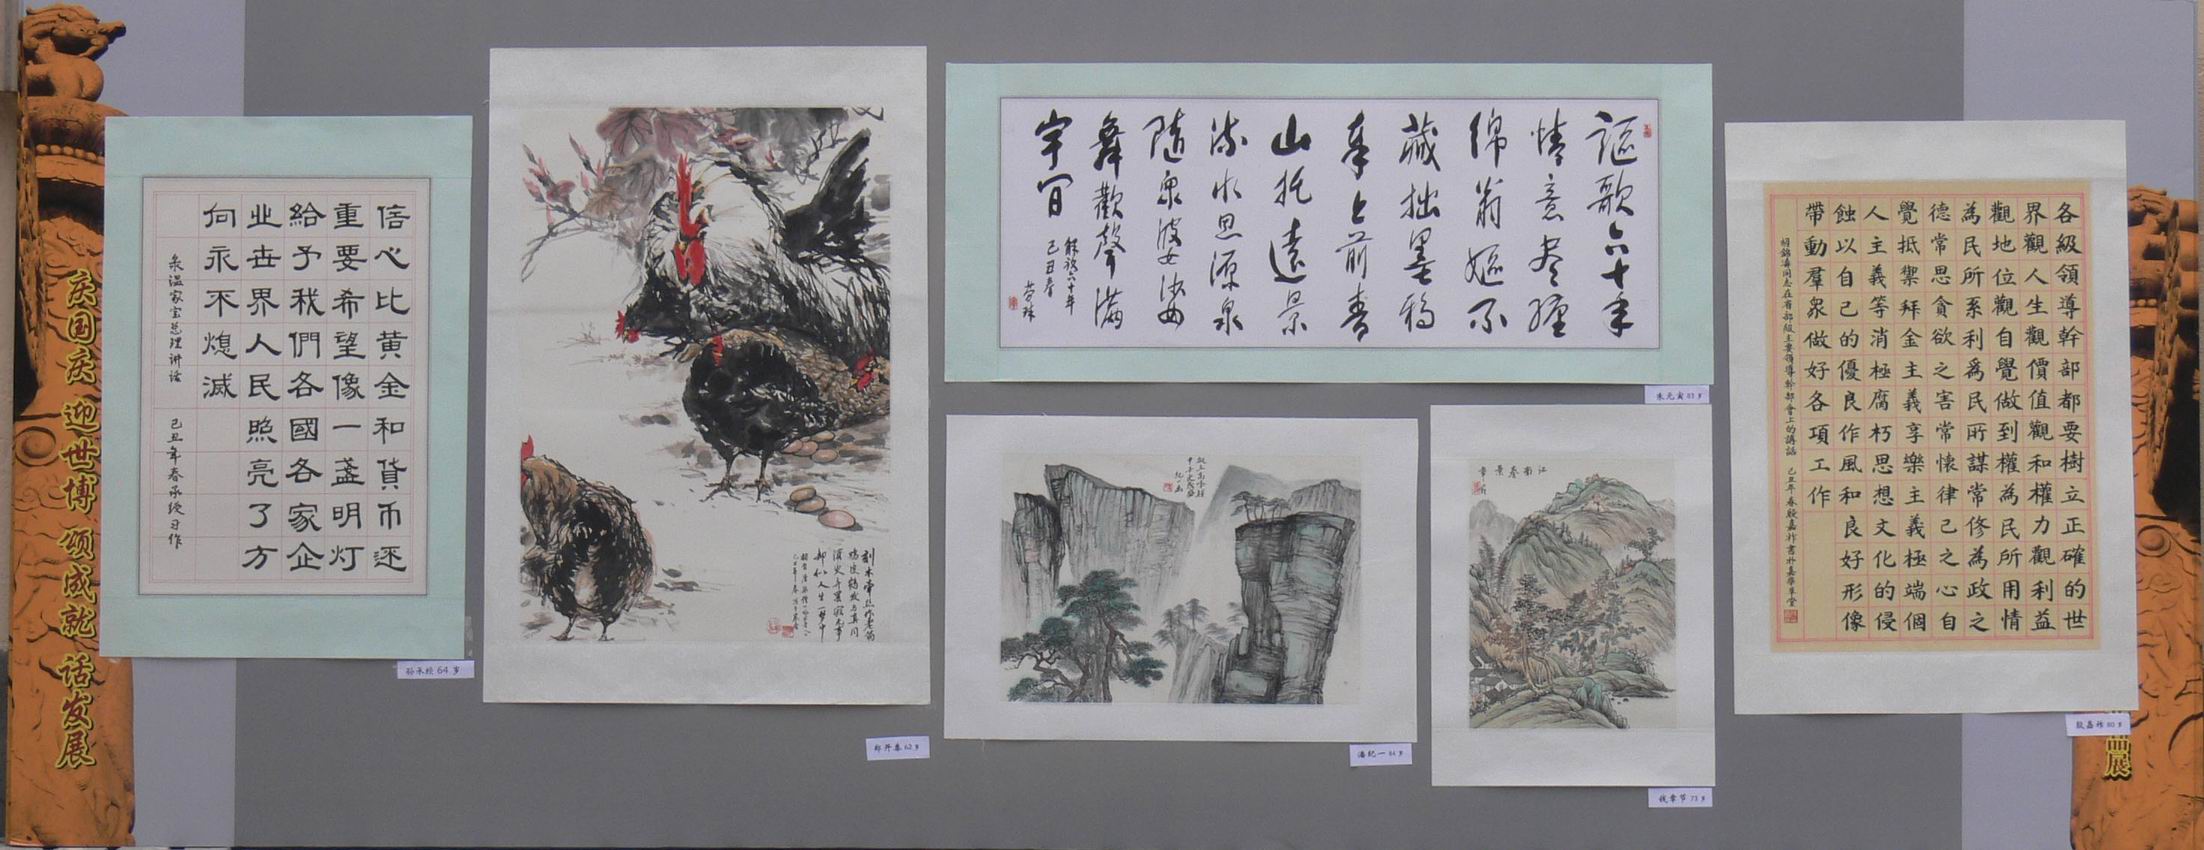 庆国庆 迎世博 颂成就 话发展
信心比黄金和货币还
重要希望像一盏明灯
給予我們各國各家企
业世界人民照亮了方
向永不熄滅
录温家宝总理讲话 己丑年春承绶习作
孙承绶 64岁
刻木牵丝作老翁
鸡皮鹤发与真同
须臾弄罢寂无事
却似人生一梦中
郑丹秦 62岁
謳歌六十年
情意尽缠
绵翁嫗不
藏拙墨稿
奉上前青
山托遠景
流水思源泉
隨衆
舞歡聲滿
宇间
解放六十年
己丑春
83岁
潘纪一 84岁
江南春景
钱章节 73岁
各級領導幹部都要樹立正確的世
界觀人生觀價值觀和權力觀利益
觀地位觀自覺做到權為民所用情
為民所系利為民所謀常修為政之
德常思貪欲之害常懷律己之心自
覺抵禦拜金主義享樂主義極端個
人主義等消極腐朽思想文化的侵
蝕以自己的優良作風和良好形像
帶動羣衆做好各項工作
胡錦濤同志在省部級主要領導幹部會上的講話 己丑年春殷嘉祚書於嘉華草堂
殷嘉祚 80岁
品展